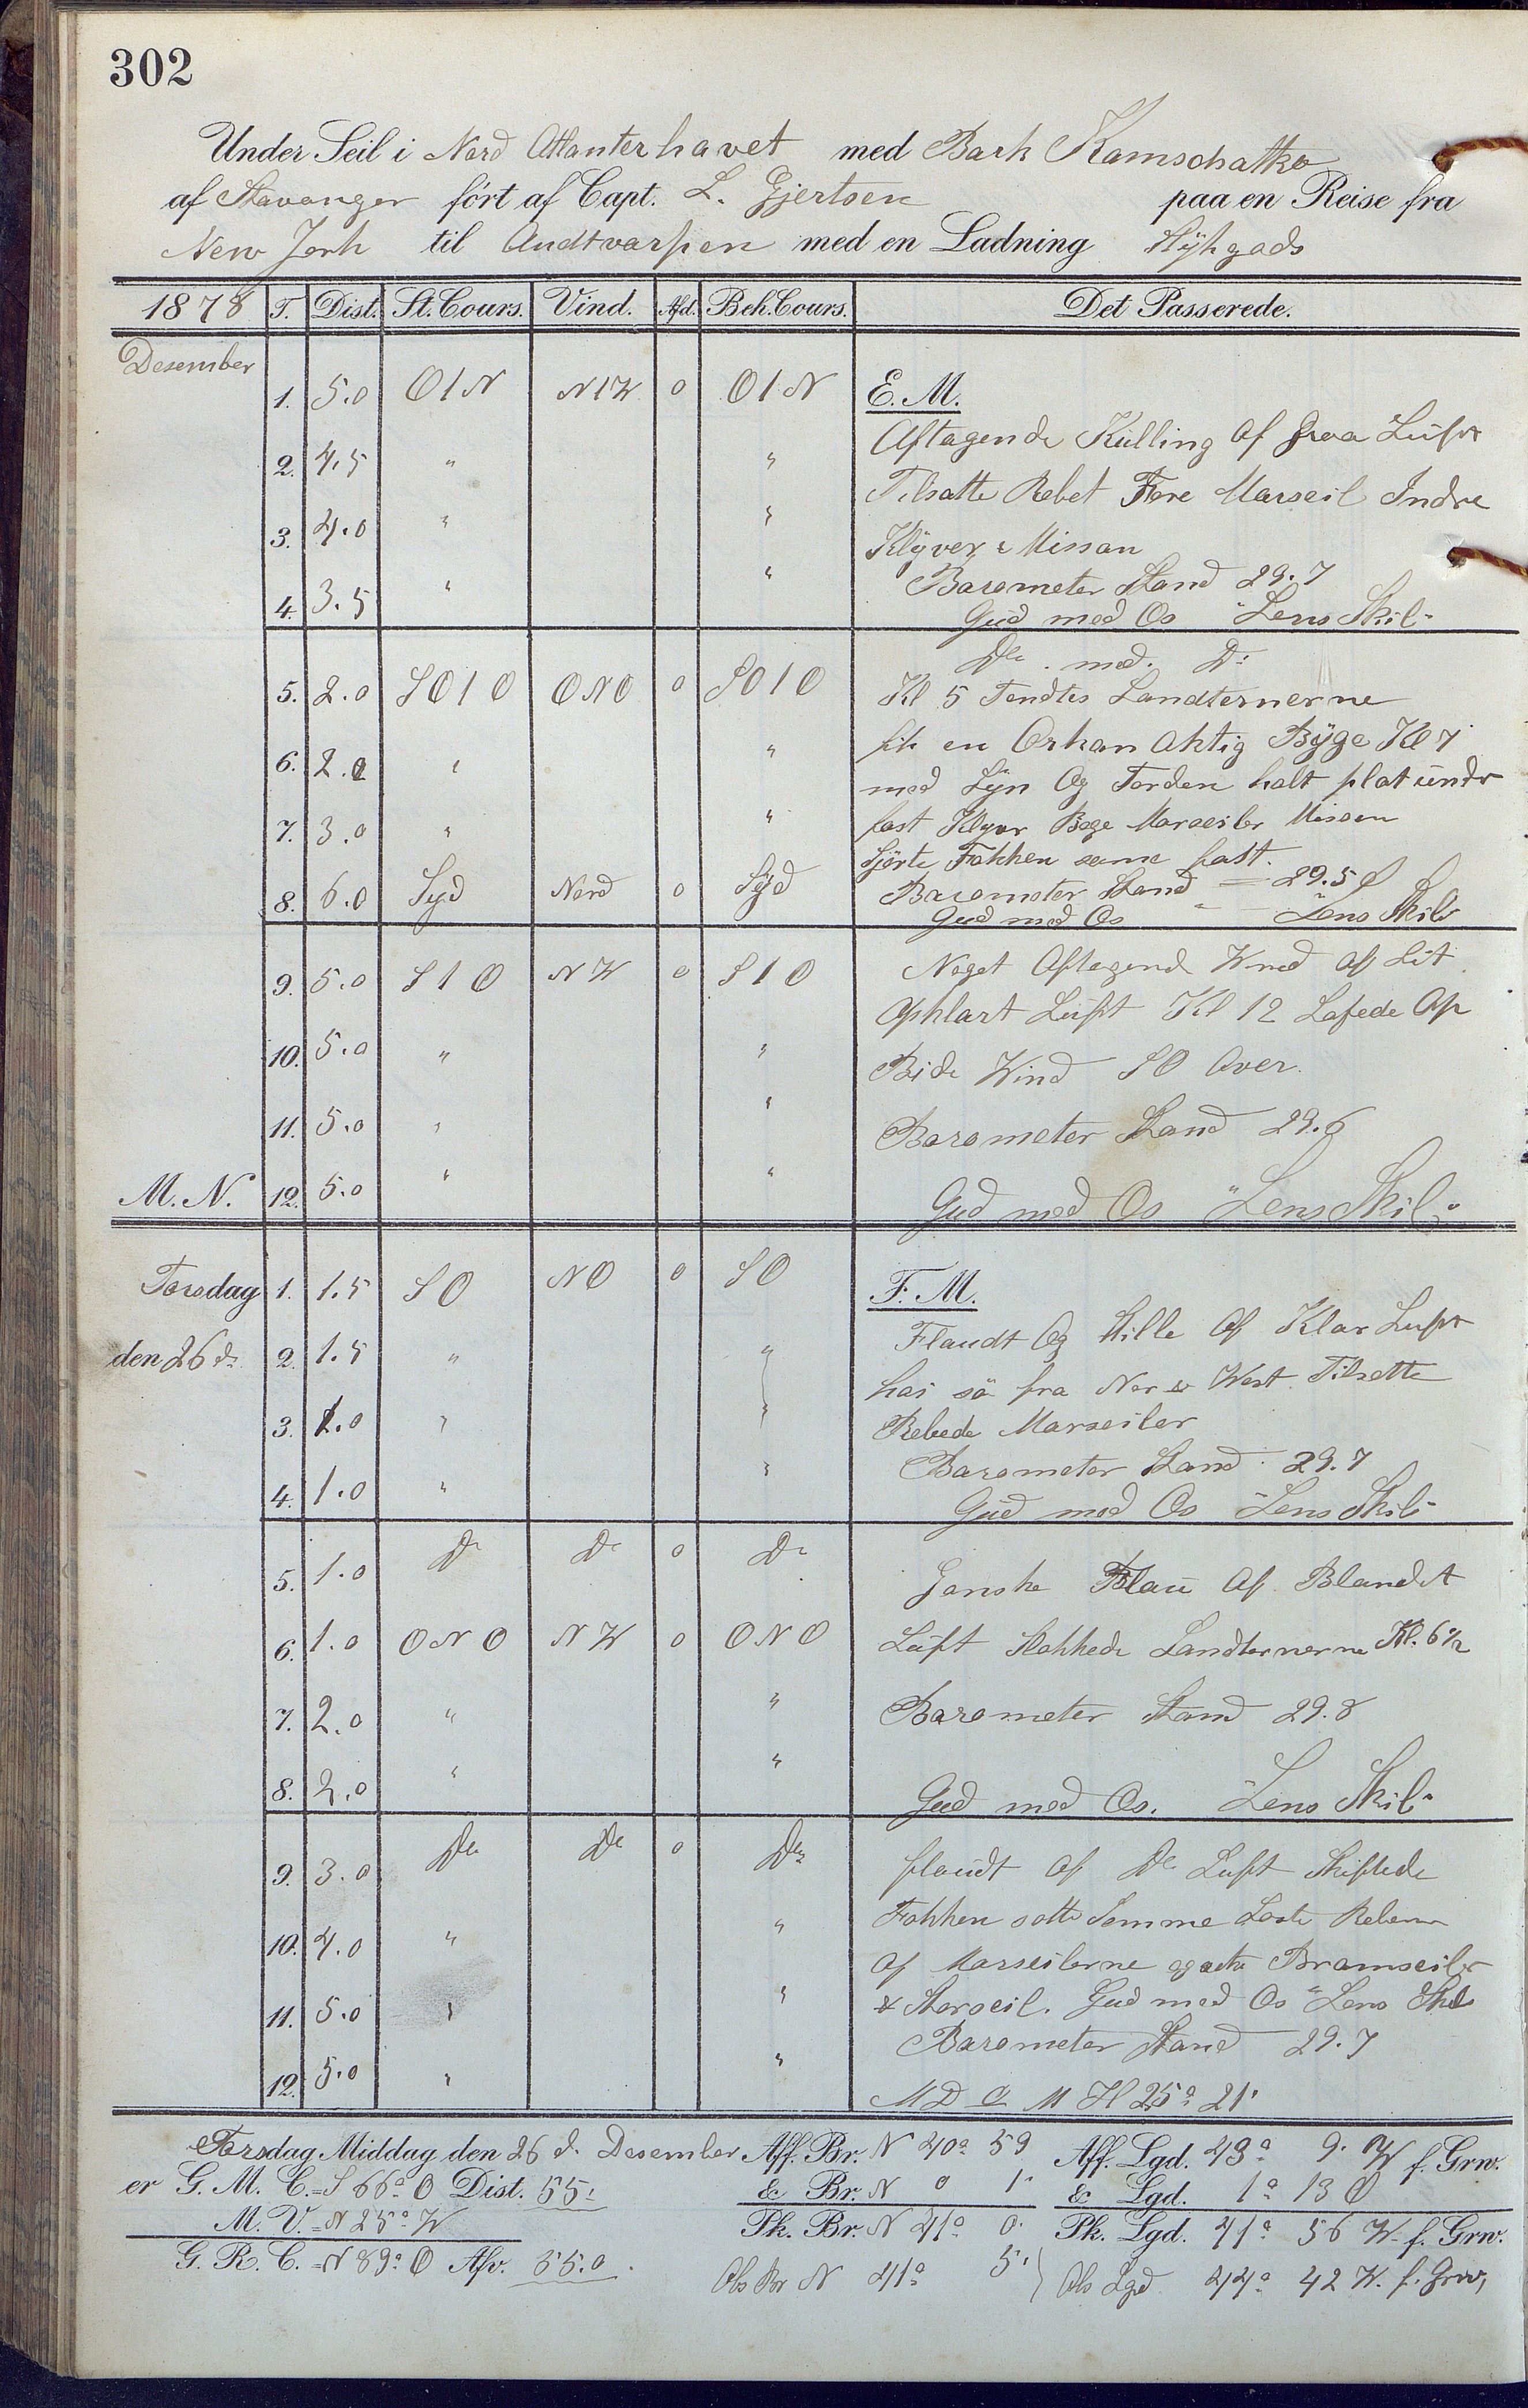 302
Under Seil i Nord Atlanterhavet med Bark Kamschatka
af Stavanger ført af Capt. L. Gjertsen paa en Reise fra
New Jork til Andtvarpen med en Ladning Stÿkgods
1878 T. Dist. St. Cours. Vind. Afd. Beh. Cours. Det Passerede.
Desember
1. 5.0 O1N N1W 0 O1N E. M.
Aftagende Külling Af Graa Lüft
2. 4.5 " "
Tilsatte Rebet Fore Marseil Indre
3. 4.0 " "
Klÿver & Missan
4. 3.5 " "
Barometer Stand 29.7
Gud med Os "Lens Skib"
De med D:
5. 2.0 SO1O ONO 0 SO1O Kl 5 Tendtes Landternerne
6. 2.0 " " fik en Orkan Aktig Bÿge Kl 7
med Lÿn Og Torden halt plat under
7. 3.0 " " fast Klyver Bege Marseiler Missan
Gjorte Fokken same fast.
8. 6.0 Syd Nord 0 Sÿd Barometer Stand 29.5
Gud med Os "Lens Skib
9. 5.0 S1O NW 0 S1O Noget Aftagend Wind Af Lit
Opklart Luft Kl 12 Lafede Op
10. 5.0 " "
Bide Wind SO Over.
11. 5.0 " "
Barometer Stand 29.6
M. N. 12. 5.0 " "
Gud med Os "Lens Skib"
Torsdag 1. 1.5 SO NO 0 SO F. M.
Flaudt Og Stille Af Klar Luft
den 26 d: 2. 1.5 " "
hai sö fra Nor & West Tilsette
3. 1.0 " " Rebede Marseiler
Barometer Stand 29.7
4. 1.0 " "
Gud med Os "Lens Skib"
5. 1.0 De De 0 De Ganske Flaü Af Blandet
6. 1.0 ONO NW 0 ONO Lüft Slokkede Landternerne Kl. 6½
7. 2.0 " " Barometer Stand 29.8
8. 2.0 " "
Gud med Os. "Lens Skib"
9. 3.0 De De 0 De flaudt Af De Luft Skiftede
Fokken satte Samme Loste Rebene
10. 4.0 " "
Af Marseilerne Bramseiler
11. 5.0 " " & Storseil. Gud med Os "Lens Skib
Barometer Stand 29.7
12. 5.0 " "
M D M H 25° 21'
Torsdag Middag den 26 d. Desember Aff. Br. N 40° 59 Aff. Lgd. 43° 9' W f. Grw.
er G. M. C. = S 66° O Dist. 55' & Br. N 0 1' & Lgd. 1° 13 O
M. V. = N 25° W Pk. Br. N 41° 0' Pk. Lgd. 41° 56 W f. Grw.
G. R. C. = N 89° O Afv. 55.0 Obs Br N 41° 5' Obs Lgd 44° 42 W. f. Grw,